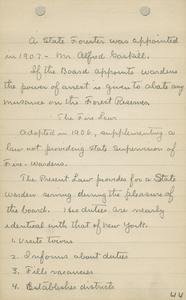 A State Forester was appointed
in 1907 - Mr. Alfred Gaskill.
If the Board appoints wardens
the power of arrest is given to abate any
nuisance on the Forest Reserves.
The Fire Law
Adopted in 1906, supplementing a
law not providing State Supervision of
Fire-Wardens.
The Present Law provides for a State
Warden serving during the pleasure of
the board. His duties are nearly
identical with that of New York.
1. Visits towns
2. Informs about duties
3. Fills vacancies
4. Establishes districts